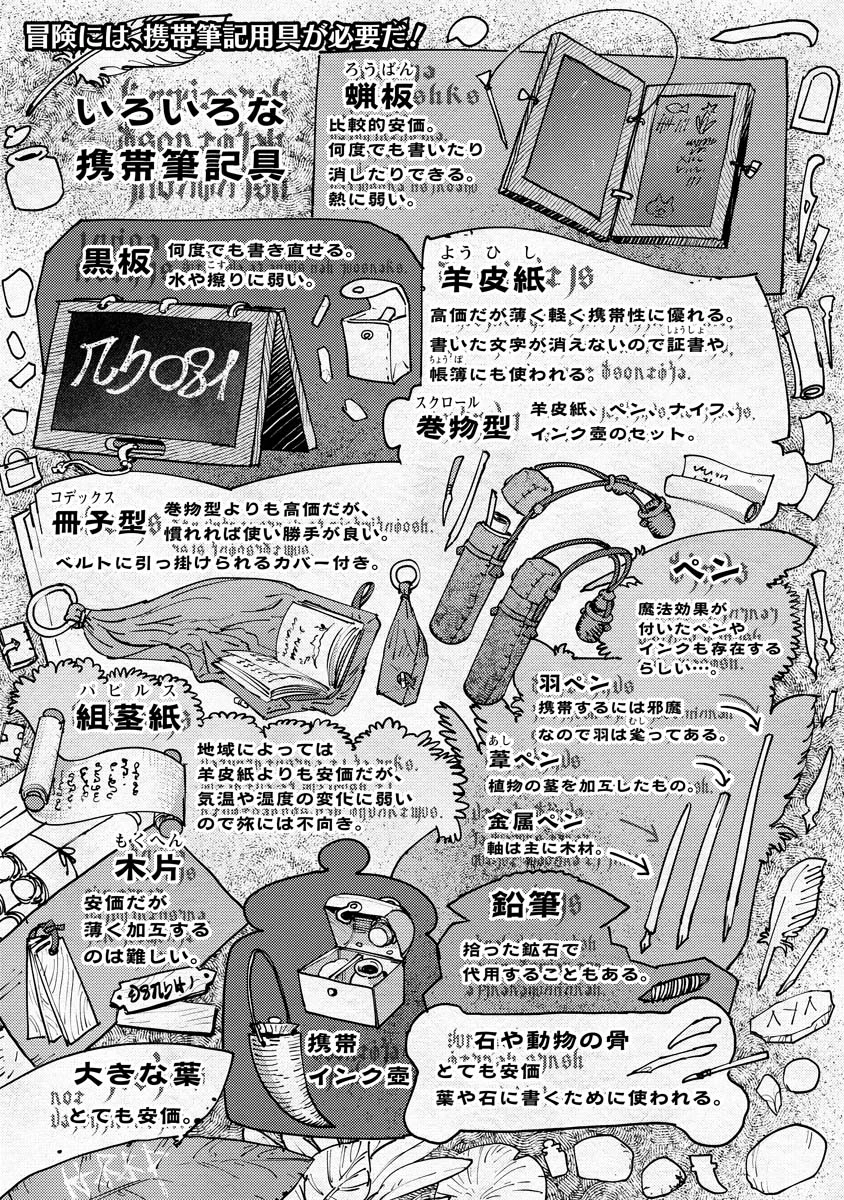 冒険には、携帯筆記用具が必要だ！
いろいろな
携帯筆記具
ろうばん
蝋板
比較的安価。
何度でも書いたり
消したりできる。
熱に弱い。
黒板
何度でも書き直せる。
水や擦りに弱い。
こす
ようひし
羊皮紙
高価だが薄く軽く携帯性に優れる。
書いた文字が消えないので証書や
しょうしょ
帳簿にも使われる。
ちょうぼ
スクロール
巻物型
羊皮紙、ペン、ナイフ、
インク壺のセット。
コデックス
冊子型
巻物型よりも高価だが、
慣れれば使い勝手が良い。
ベルトに引っ掛けられるカバー付き。
ペン
魔法効果が
付いたペンや
インクも存在する
らしい…。
羽ペン
携帯するには邪魔
なので羽は毟ってある。
むし
あし
葦ペン
植物の茎を加工したもの。
金属ペン
軸は主に木材。
パピルス
組茎紙
地域によっては
羊皮紙よりも安価だが、
気温や湿度の変化に弱い
ので旅には不向き。
もくへん
木片
安価だが
薄く加工する
のは難しい。
携帯
インク壺
鉛筆
拾った鉱石で
代用することもある。
石や動物の骨
とても安価
葉や石に書くために使われる。
大きな葉
とても安価。